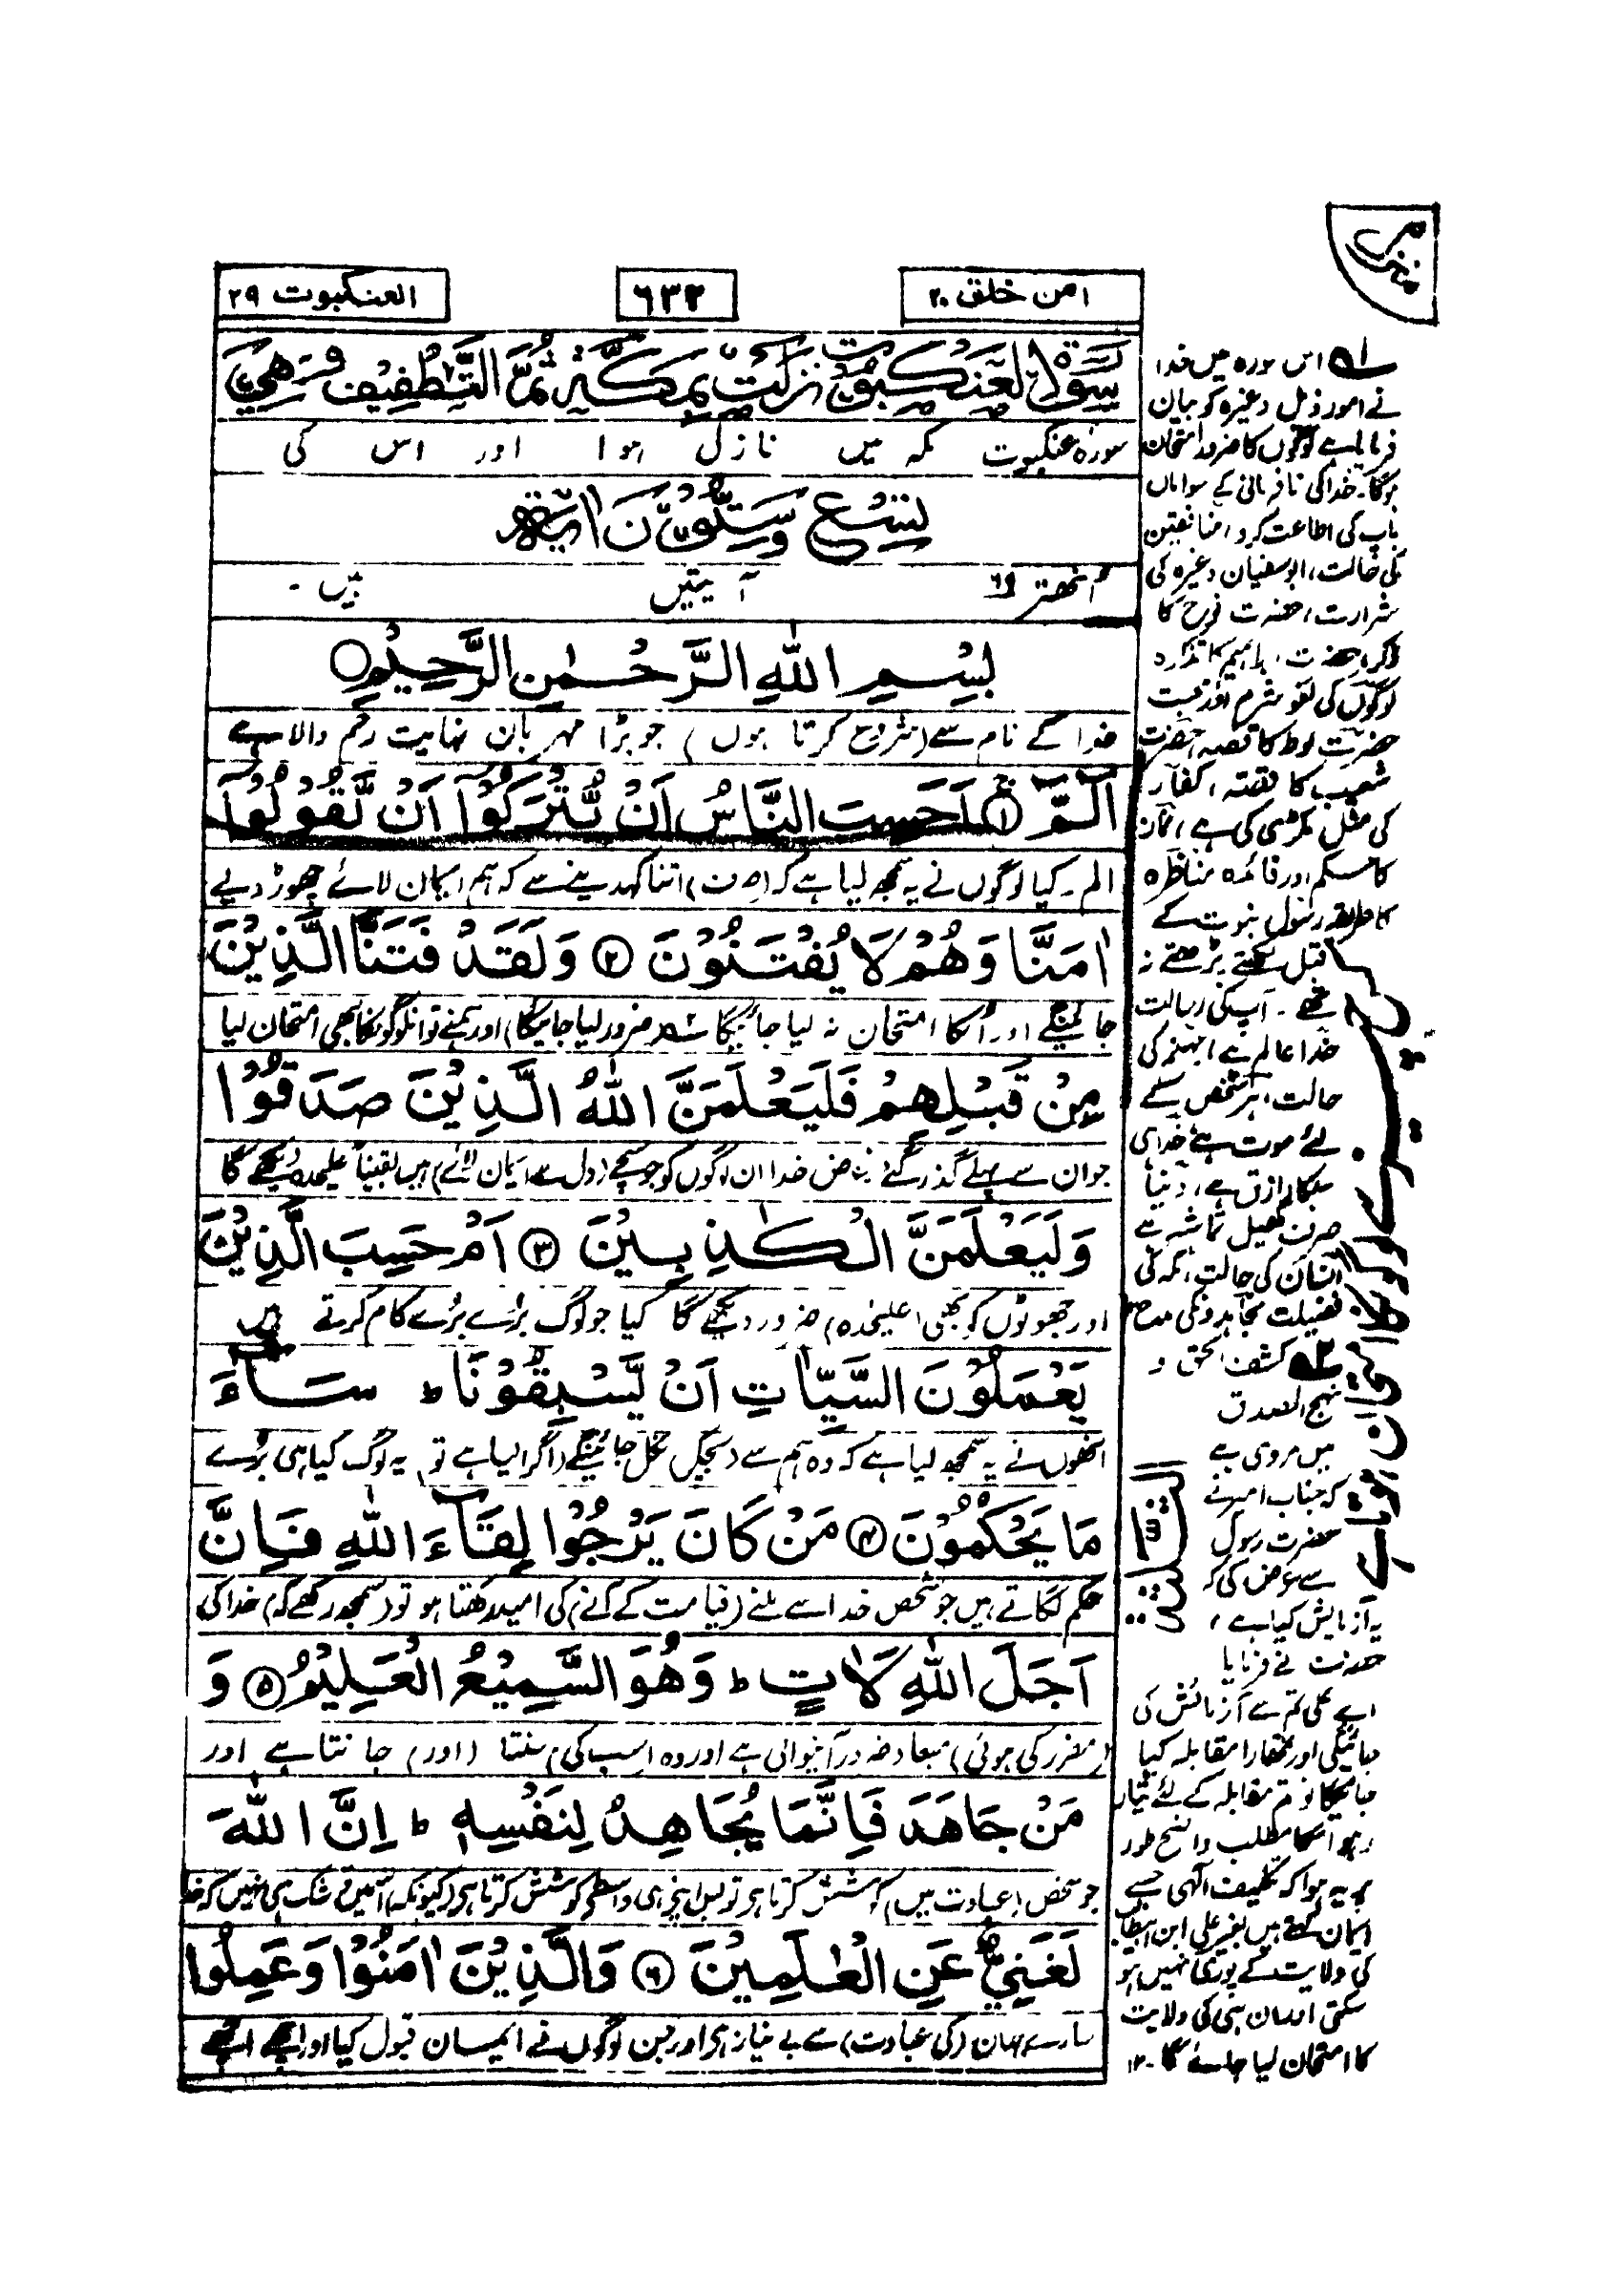 امن خلق ۲۰
۶۳۳
العنکبوت ۲۹
سورة العنكبوت نزلت بمكة ثم التطفيف وهي
سورہ عنکبوت مکہ میں نازل ہوا اور اس کی
تسع وستون اية
اُنھتر ۶۹ آیتیں ہیں ۔
بِسْمِ اللّٰهِ الرَّحْمٰنِ الرَّحِيْمِ
خدا کے نام سے (شروع کرتا ہوں) جو بڑا مہربان نہایت رحم والا ہے
الٓمّٓ ① اَحَسِبَ النَّاسُ اَنْ يُّتْرَكُوْٓا اَنْ يَّقُوْلُوْٓا
الم ۔ کیا لوگوں نے یہ سمجھ لیا ہے کہ (صرف) اتنا کہدینے سے کہ ہم ایمان لائے چھوڑ دیے
اٰمَنَّا وَهُمْ لَا يُفْتَنُوْنَ ② وَلَقَدْ فَتَنَّا الَّذِيْنَ
جائینگے اور اُنکا امتحان نہ لیا جائیگا (ضرور لیا جائیگا) اور ہمنے تو ان لوگونکا بھی امتحان لیا
مِنْ قَبْلِهِمْ فَلَيَعْلَمَنَّ اللّٰهُ الَّذِيْنَ صَدَقُوْا
جو ان سے پہلے گذر گئے غرض خدا ان لوگوں کو جو سچے (دل سے ایمان لائے) ہیں یقیناً علیحدہ دیکھے گا
وَلَيَعْلَمَنَّ الْكٰذِبِيْنَ ③ اَمْ حَسِبَ الَّذِيْنَ
اور جھوٹوں کو بھی (علیحدہ) ضرور دیکھے گا کیا جو لوگ بُرے بُرے کام کرتے ہیں
يَعْمَلُوْنَ السَّيِّاٰتِ اَنْ يَّسْبِقُوْنَا ط سَآءَ
انھوں نے یہ سمجھ لیا ہے کہ وہ ہم سے (بچکر) نکل جائینگے (اگر ایسا ہے تو) یہ لوگ کیا ہی بُرے
مَا يَحْكُمُوْنَ ④ مَنْ كَانَ يَرْجُوْا لِقَآءَ اللّٰهِ فَاِنَّ
حکم لگاتے ہیں جو شخص خدا سے ملنے (قیامت کے آنے) کی امید رکھتا ہو تو (سمجھ رکھے کہ) خدا کی
اَجَلَ اللّٰهِ لَاٰتٍ ط وَهُوَ السَّمِيْعُ الْعَلِيْمُ ⑤ وَ
(مقرر کی ہوئی) میعاد ضرور آنیوالی ہے اور وہ (سب کی) سنتا (اور) جانتا ہے اور
مَنْ جَاهَدَ فَاِنَّمَا يُجَاهِدُ لِنَفْسِهٖ ط اِنَّ اللّٰهَ
جو شخص (عبادت میں) کوشش کرتا ہے تو بس اپنے ہی واسطے کوشش کرتا ہے (کیونکہ) اسمیں تو شک ہی نہیں کہ خدا
لَغَنِيٌّ عَنِ الْعٰلَمِيْنَ ⑥ وَالَّذِيْنَ اٰمَنُوْا وَعَمِلُوا
سارے جہان (کی عبادت) سے بے نیاز ہے اور جن لوگوں نے ایمان قبول کیا اور اچھے اچھے
۱ اس سورہ میں خدا
نے امور ذیل وغیرہ کو بیان
فرمایا ہے لوگوں کا ضرور امتحان
ہوگا ۔ خدا کی نافرمانی کے سوا ماں
باپ کی اطاعت کرو، منافقین
کی حالت، ابوسفیان وغیرہ کی
شرارت، حضرت نوح کا
ذکر، حضرت ابراہیم کا تذکرہ
لوگوں کی لغو شرم اور
حضرت لوط کا قصہ، حضرت
شعیب کا قصہ، کفار
کی مثل مکڑی کی ہے، نماز
کا حکم اور فائدہ مناظرہ
کا طریقہ رسول نبوت کے
قبل لکھتے پڑھتے نہ
تھے ۔ آپ کی رسالت
خدا عالم ہے، جہنم کی
حالت، ہر شخص کے
لئے موت ہے، خدا ہی
سبکا رازق ہے، دنیا
صرف کھیل تماشہ ہے
انسان کی حالت، مکہ کی
فضیلت مجاہدونکی مدح
۲ کشف الحق و
نہج الصدق
میں مروی ہے
کہ جناب امیر نے
حضرت رسول
سے عرض کی کہ
یہ آزمایش کیا ہے ،
حضرت نے فرمایا
اے علی تم سے آزمائش کی
جائیگی اور تمھارا مقابلہ کیا
جائیگا تو تم مقابلہ کے لئے تیار
رہو اسکا مطلب واضح طور
پر یہ ہوا کہ تکلیف الٰہی جسے
ایمان کہتے ہیں بغیر علی ابن ابیطالب
کی ولایت کے پوری نہیں ہو
سکتی اور ان ہی کی ولایت
کا امتحان لیا جائے گا ۔ ۱۲